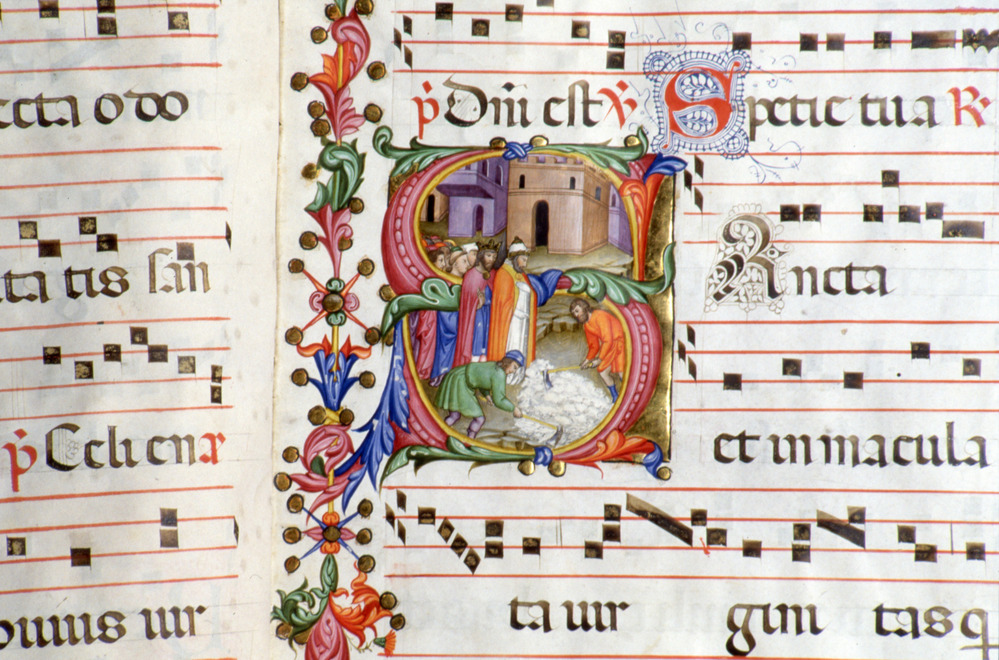 ecta odo
ta tis san
p̃ Celi enar
uir
p̃ Dñi est ℣ Spetie tua R
Sancta
et inmacula
ta uir gini tas q